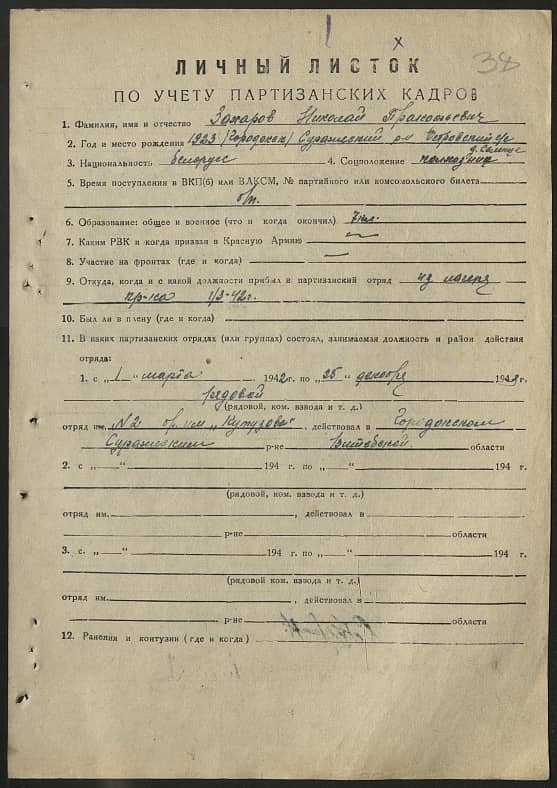 38
ЛИЧНЫЙ ЛИСТОК
ПО УЧЕТУ ПАРТИЗАНСКИХ КАДРОВ
1. Фамилия, имя и отчество Захаров Николай
2. Год и место рождения 1923 Суражский р-н
3. Национальность белорус 4. Соцположение колхозник
5. Время поступления в ВКП(б) или ВЛКСМ, № партийного или комсомольского билета
б/п.
6. Образование: общее и военное (что и когда окончил) 7 кл.
7. Каким РВК и когда призван в Красную Армию —
8. Участие на фронтах (где и когда) —
9. Откуда, когда и с какой должности прибыл в партизанский отряд из лагеря
пр-ка 1/3-42г.
10. Был ли в плену (где и когда)
11. В каких партизанских отрядах (или группах) состоял, занимаемая должность и район действия
отряда:
1. с „1“ марта 1942 г. по „25“ декабря 194 г.
рядовой
(рядовой, ком. взвода и т. д.)
отряд им. №2 бр. им „Кутузова“, действовал в Городокском
Суражском р-не Витебской области
2. с „ “ 194 г. по „ “ 194 г.
(рядовой, ком. взвода и т. д.)
отряд им. , действовал в
р-не области
3. с „ “ 194 г. по „ “ 194 г.
(рядовой, ком. взвода и т. д.)
отряд им. , действовал в
р-не области
12. Ранения и контузии (где и когда)